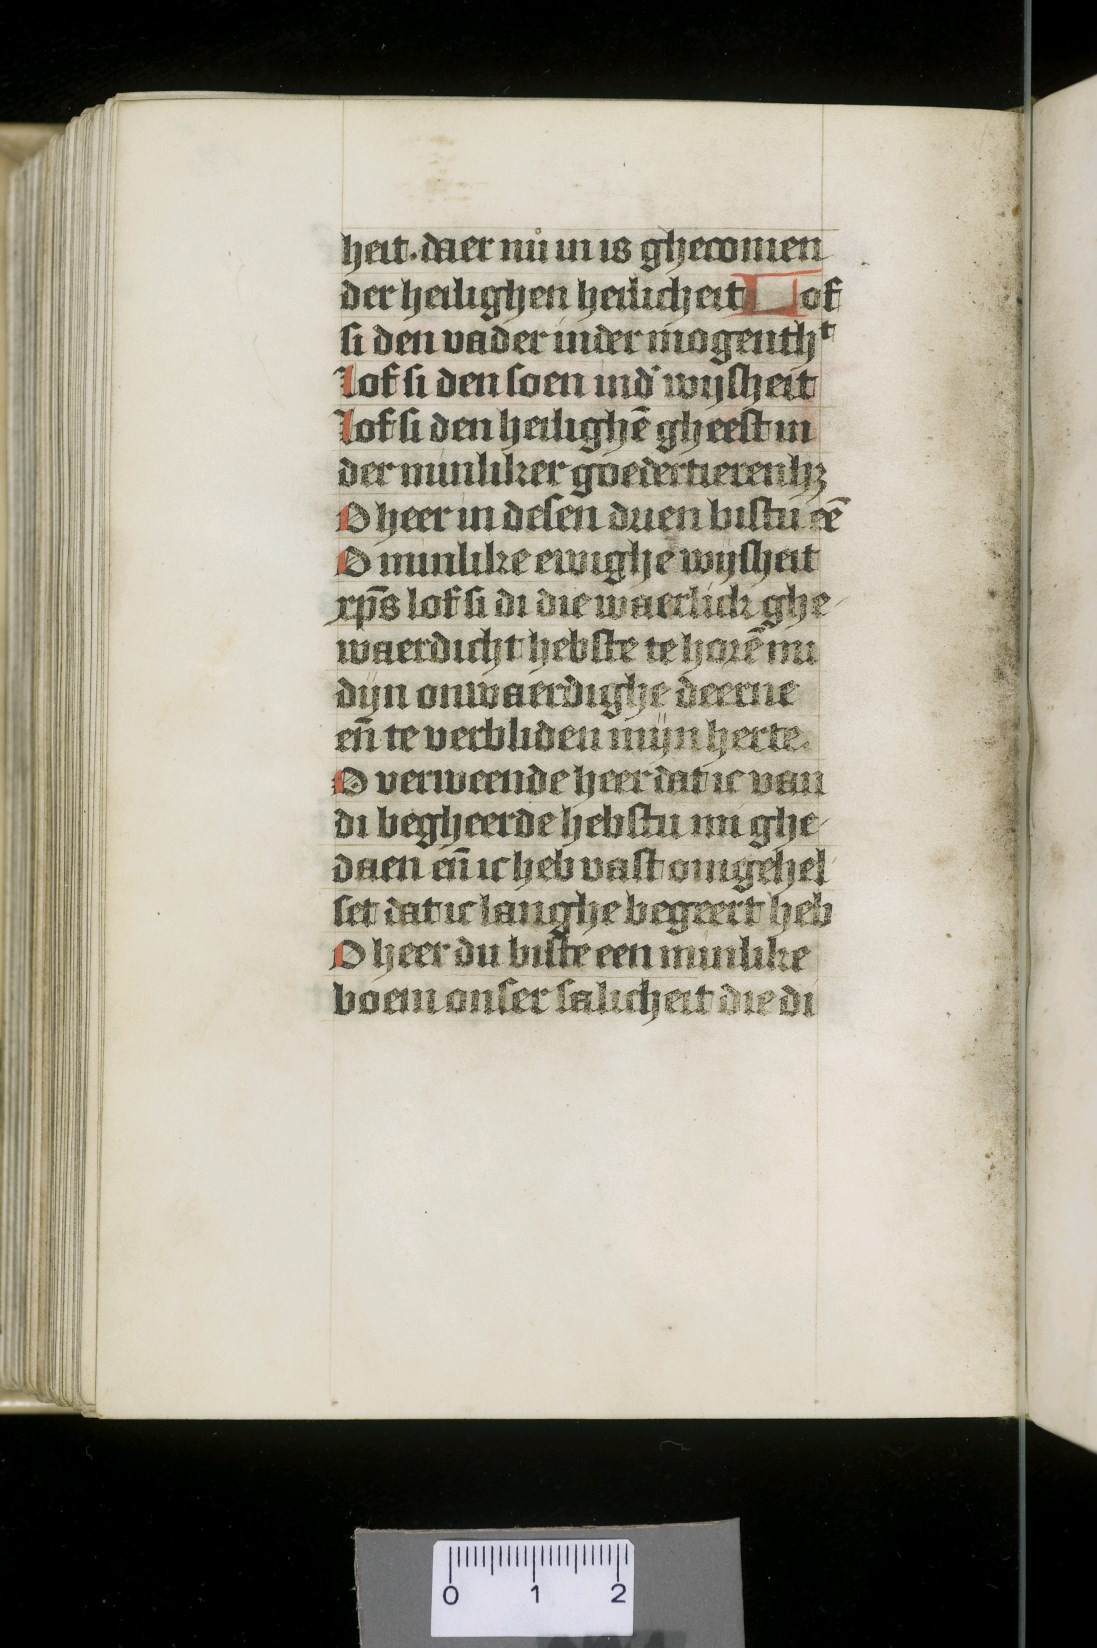 heit. daer nu in is ghecomen
der heilighen heilicheit Lof
si den vader inder mogenthᵗ
lof si den soen ind' wijsheit
lof si den heilighē gheest in
der minliker goedertierenhꝫ
O heer in desen drien bistu eē
O minlike ewighe wijsheit
xp̄s lof si di die waerlick ghe
waerdicht hebste te horē mi
dijn onwaerdighe deerne
eñ te verbliden mijn herte.
O verweende heer dat ic van
di begheerde hebstu mi ghe
daen eñ ic heb vast omgehel
set dat ic langhe begeert heb
O heer du biste een minlike
boem onser salicheit die di
0 1 2